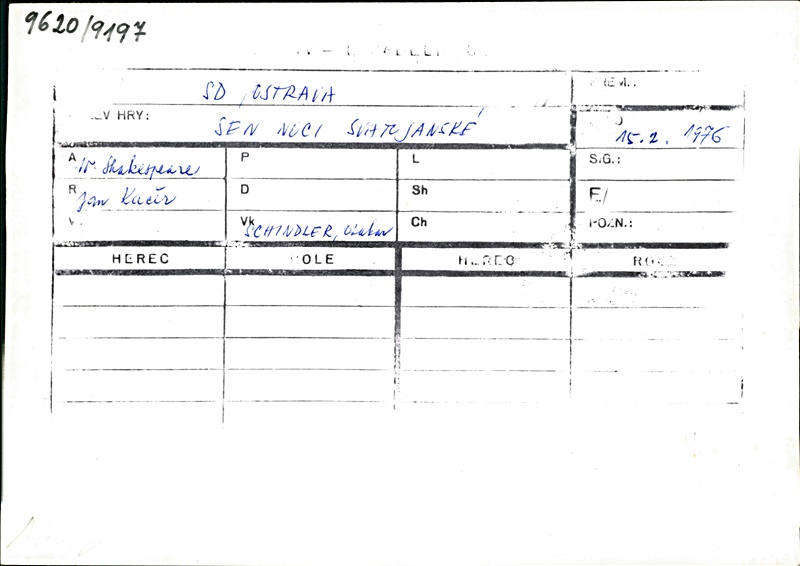 9620/9197
SD OSTRAVA
PREM.:
EV HRY:
SEN NOCI SVATOJANSKÉ
15.2. 1976
A W. Shakespeare
P
L
SIG.:
R Jan Kačer
D
Sh
F/
V
Vk SCHINDLER, Otakar
Ch
POZN.:
HEREC
ROLE
HEREC
ROLE